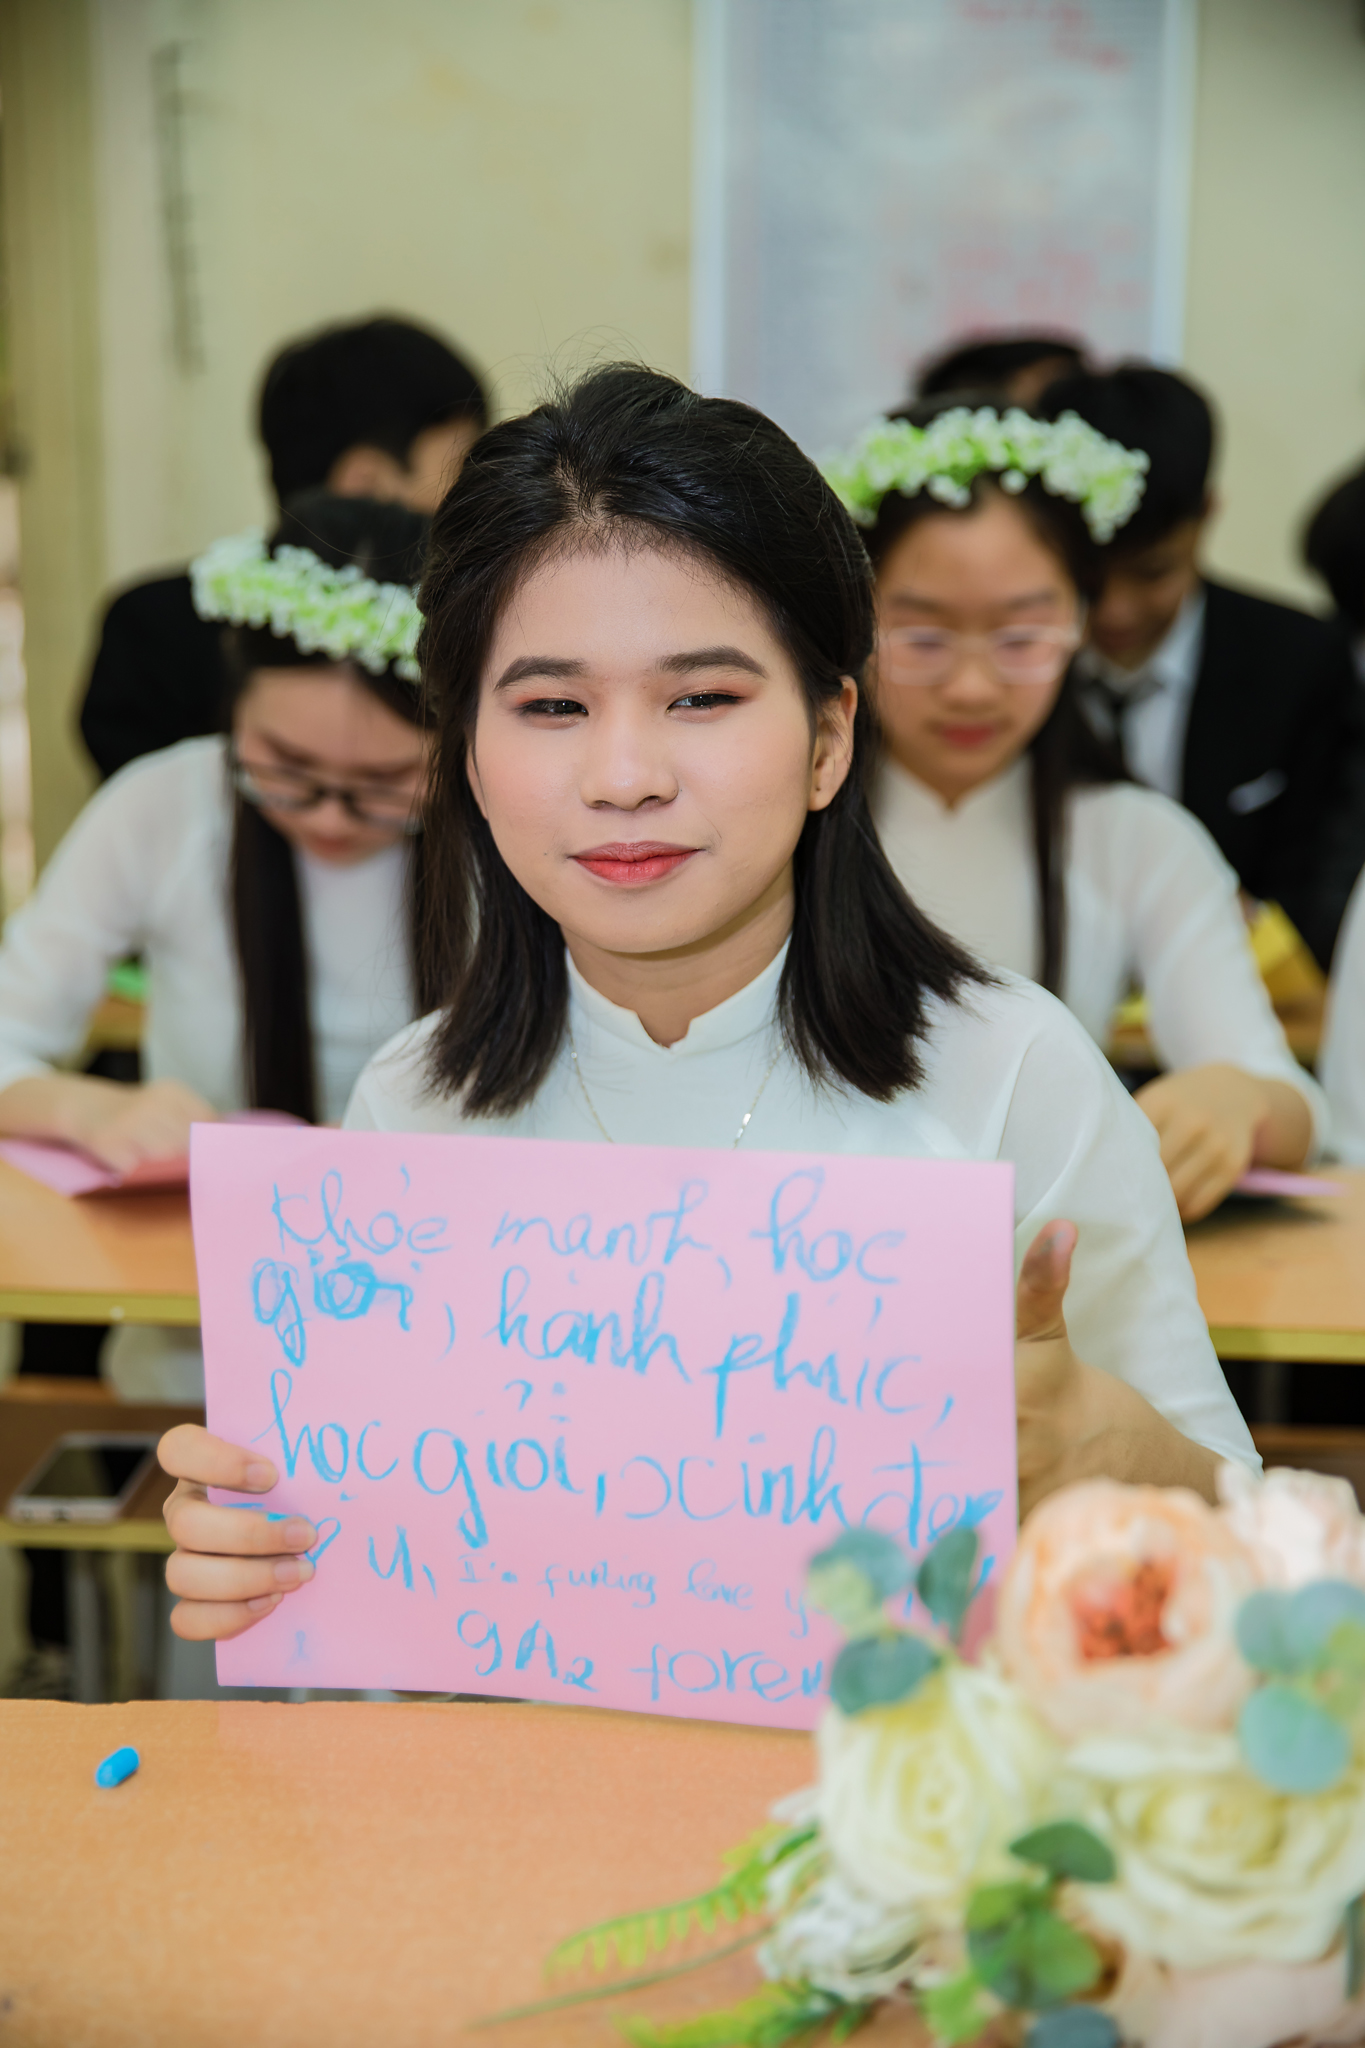 Khỏe mạnh, học
giỏi, hạnh phúc,
học giỏi, xinh đẹp,
U, I'm love
9A2 forev